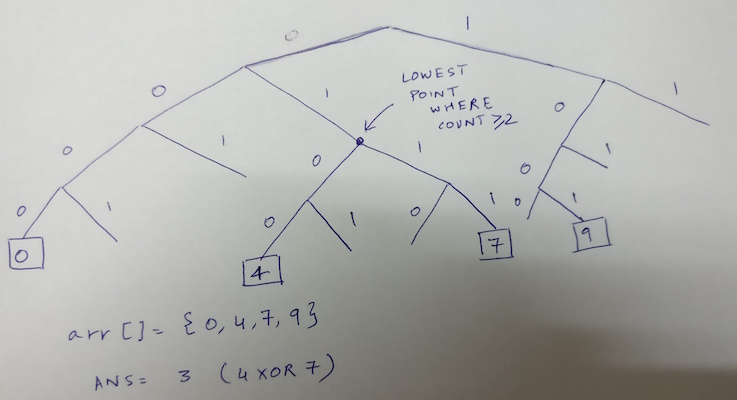 0 1
0 1 0 1
LOWEST
POINT
WHERE
COUNT ≥2
0 1 0 1 0 1
0 1 0 1 0 1 0 1
0 4 7 9
arr[] = {0,4,7,9}
ANS = 3 (4 XOR 7)